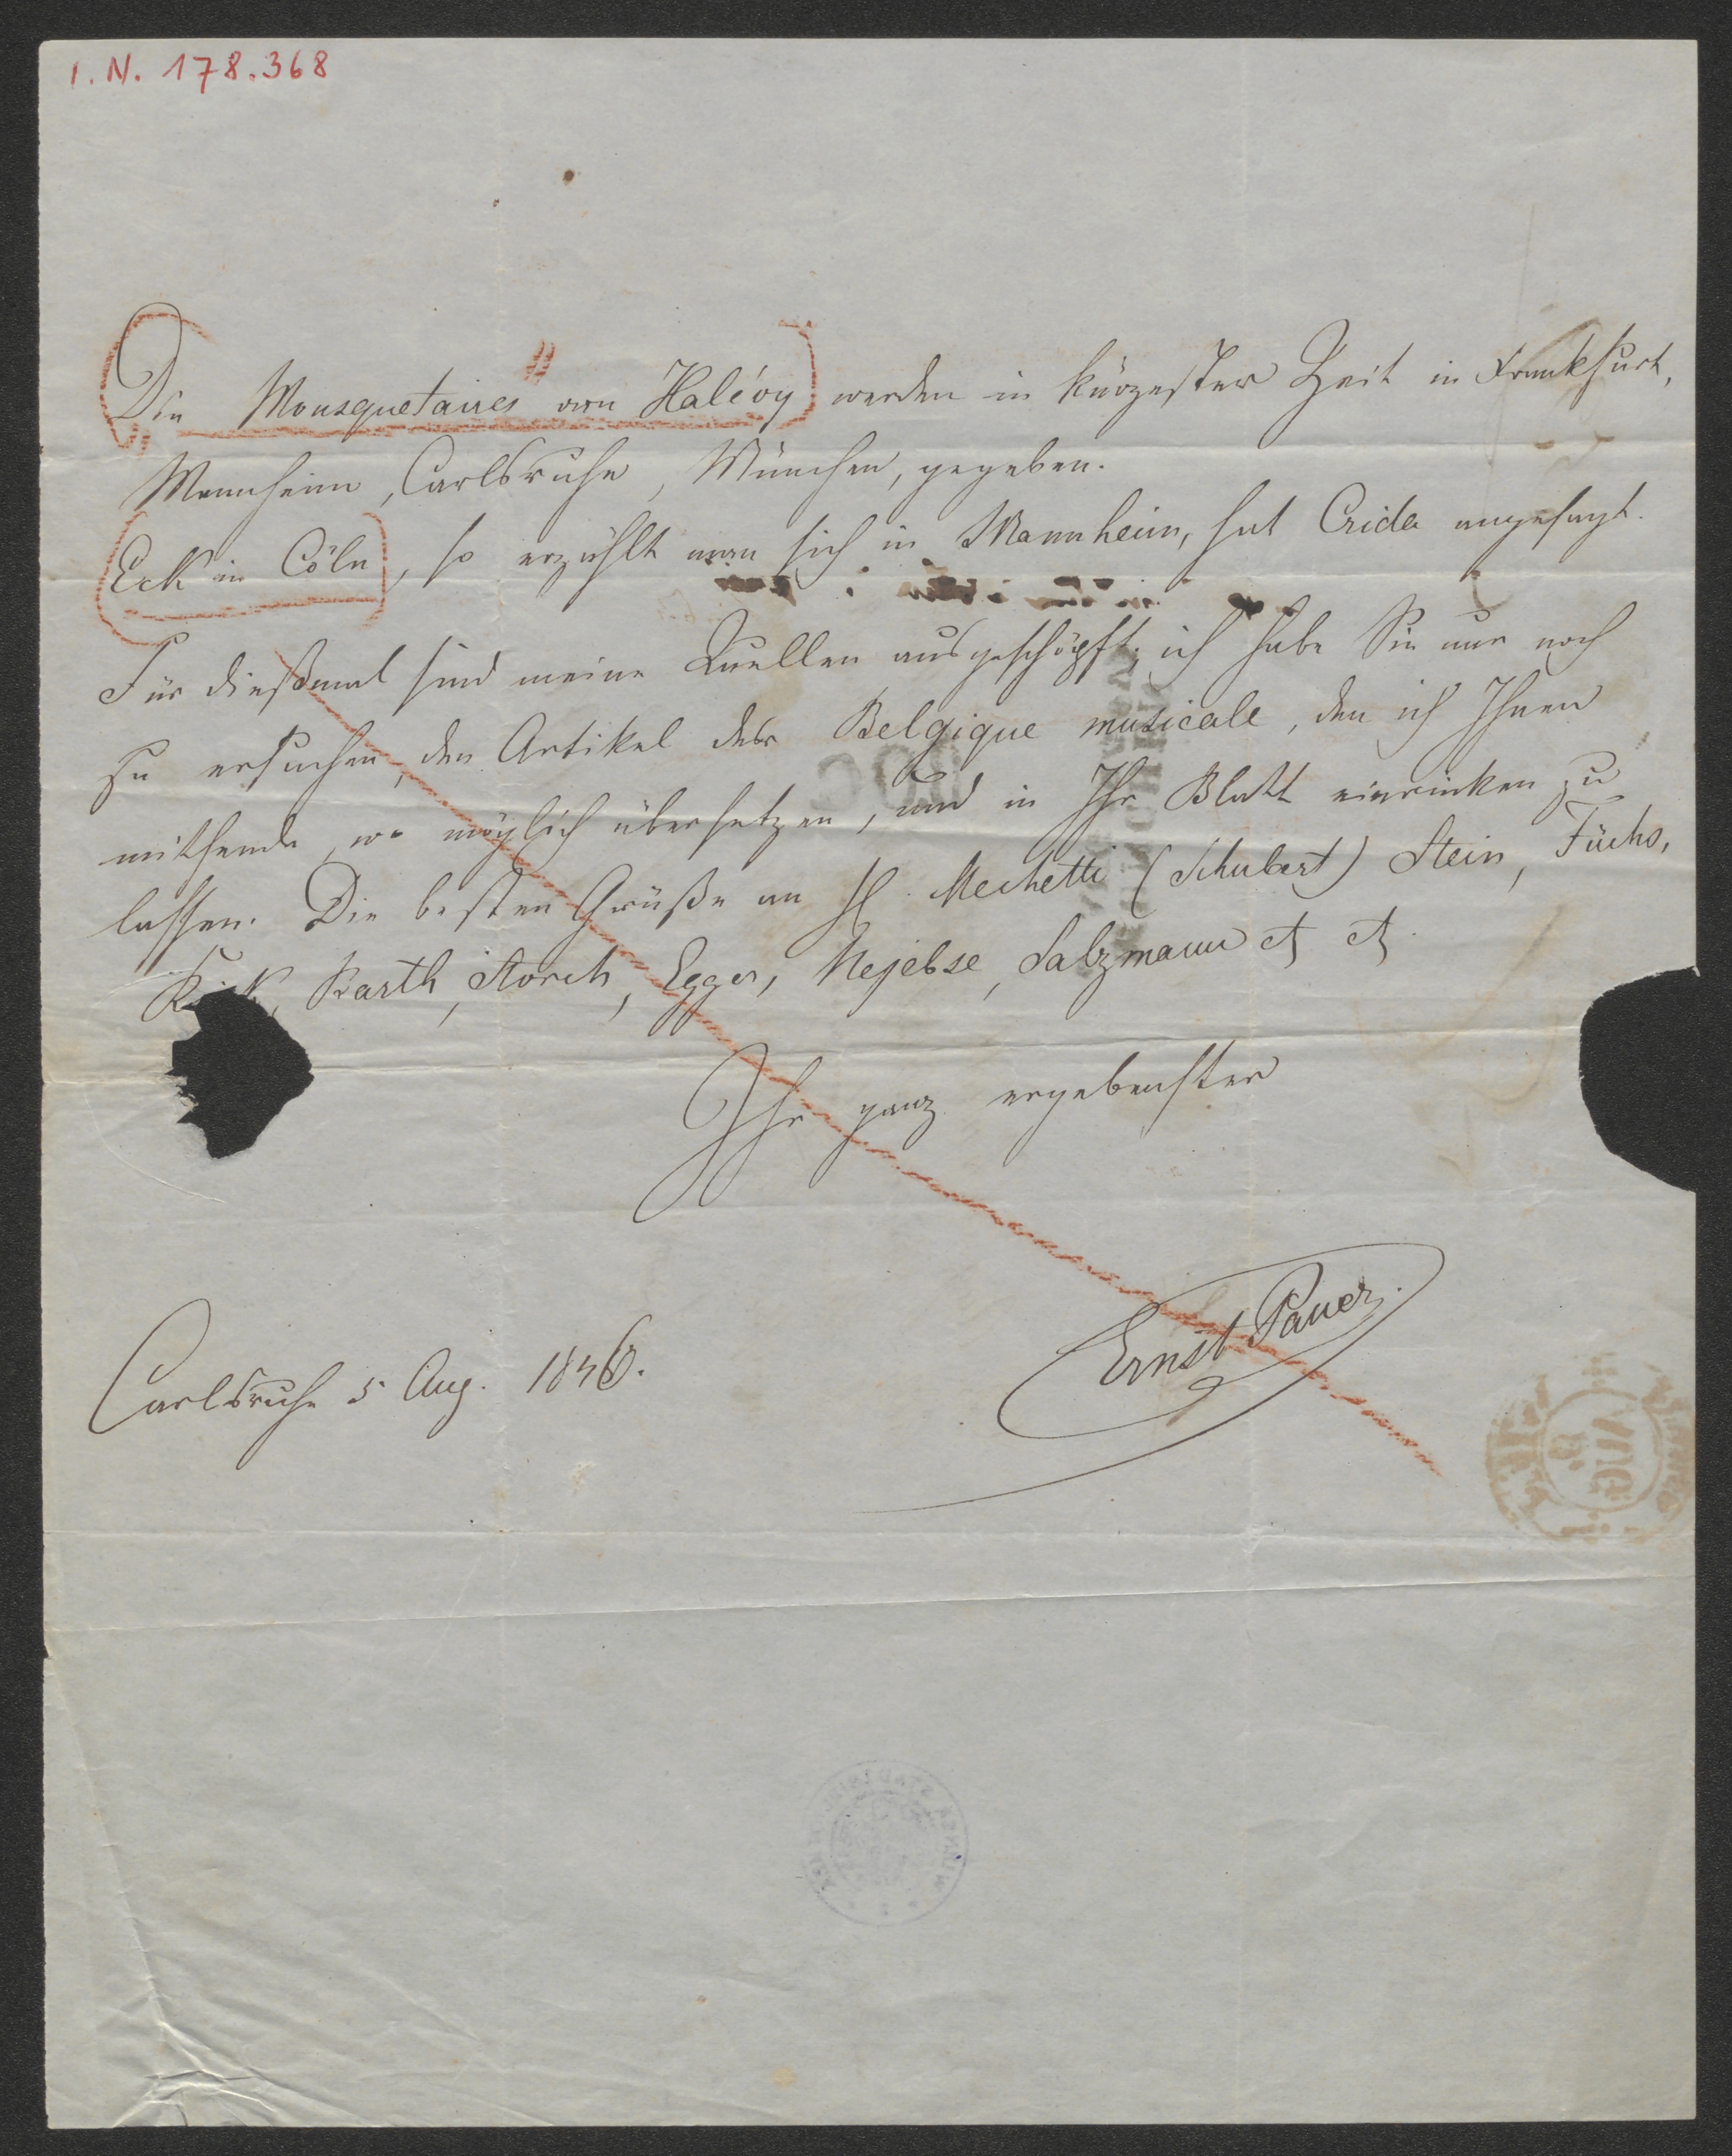 I. N. 178.368
Die Mousquetaires von Halévy werden in kürzester Zeit in Frankfurt,
Mannheim, Carlsruhe, München, gegeben.
Eck in Cöln, so erzählt man sich in Mannheim, hat Crida angesagt.
Für dießmal sind meine Quellen ausgeschöpft; ich habe Sie nur noch
zu ersuchen, den Artikel der Belgique musicale, den ich Ihnen
mitsende, wo möglich übersetzen, und in Ihr Blatt einrücken zu
lassen. Die besten Grüße an H. Mechetti (Schubert) Stein, Fuchs,
Barth, Storch, Egger, Nejebse, Salzmann
Ihr ganz ergebenster
Ernst Pauer.
Carlsruhe 5 Aug. 1846.